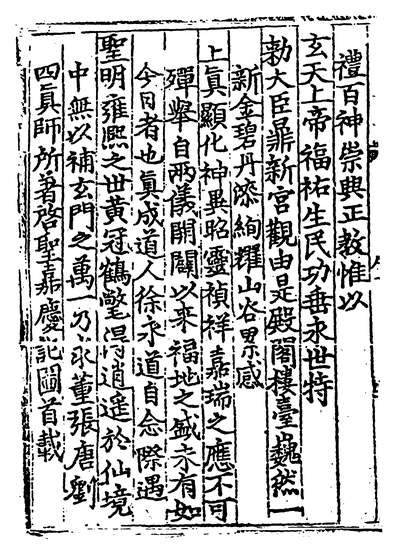 禮百神崇典正教惟以
玄天上帝福祐生民功垂永世特
勑大臣鼎新宮觀由是殿閣樓臺巍然一
新金碧丹漆絢耀山谷累感
上眞顯化神異昭靈禎祥嘉瑞之應不可
殫舉自兩儀開闢以來福地之盛未有如
今日者也眞成道人徐永道自念際遇
聖明雍熙之世黃冠鶴氅得消遥於仙境
中無以補玄門之萬一乃求董張唐劉
四眞師所著啓聖嘉慶記圖首載